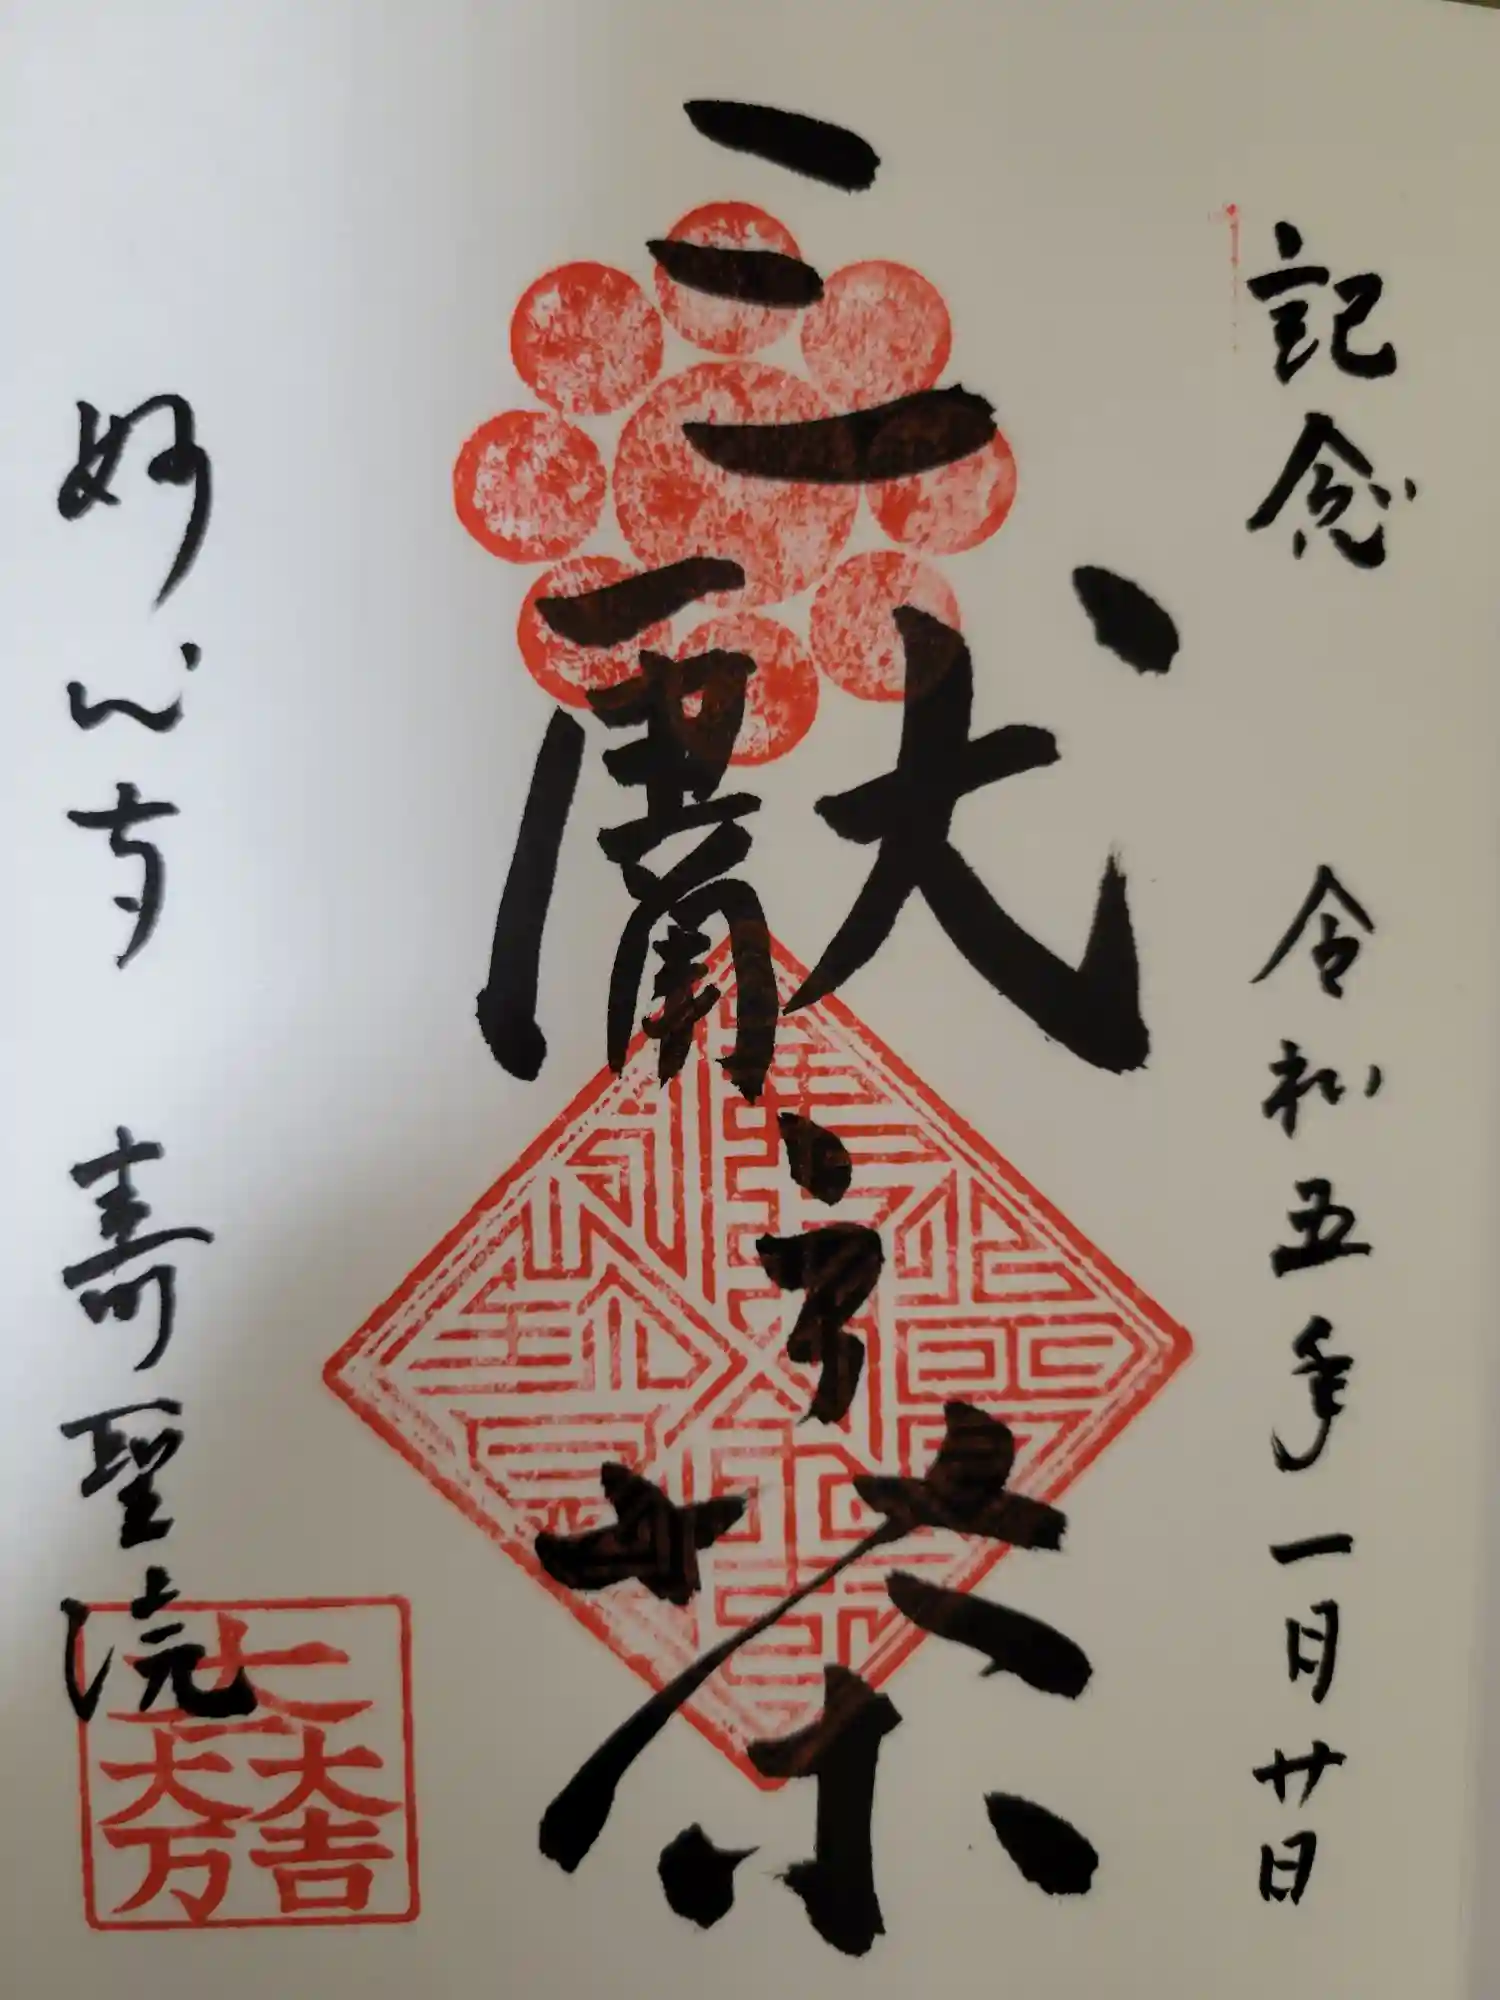 記念　令和五年一月廿日
三獻之茶
妙心寺　壽聖院
大一大万大吉